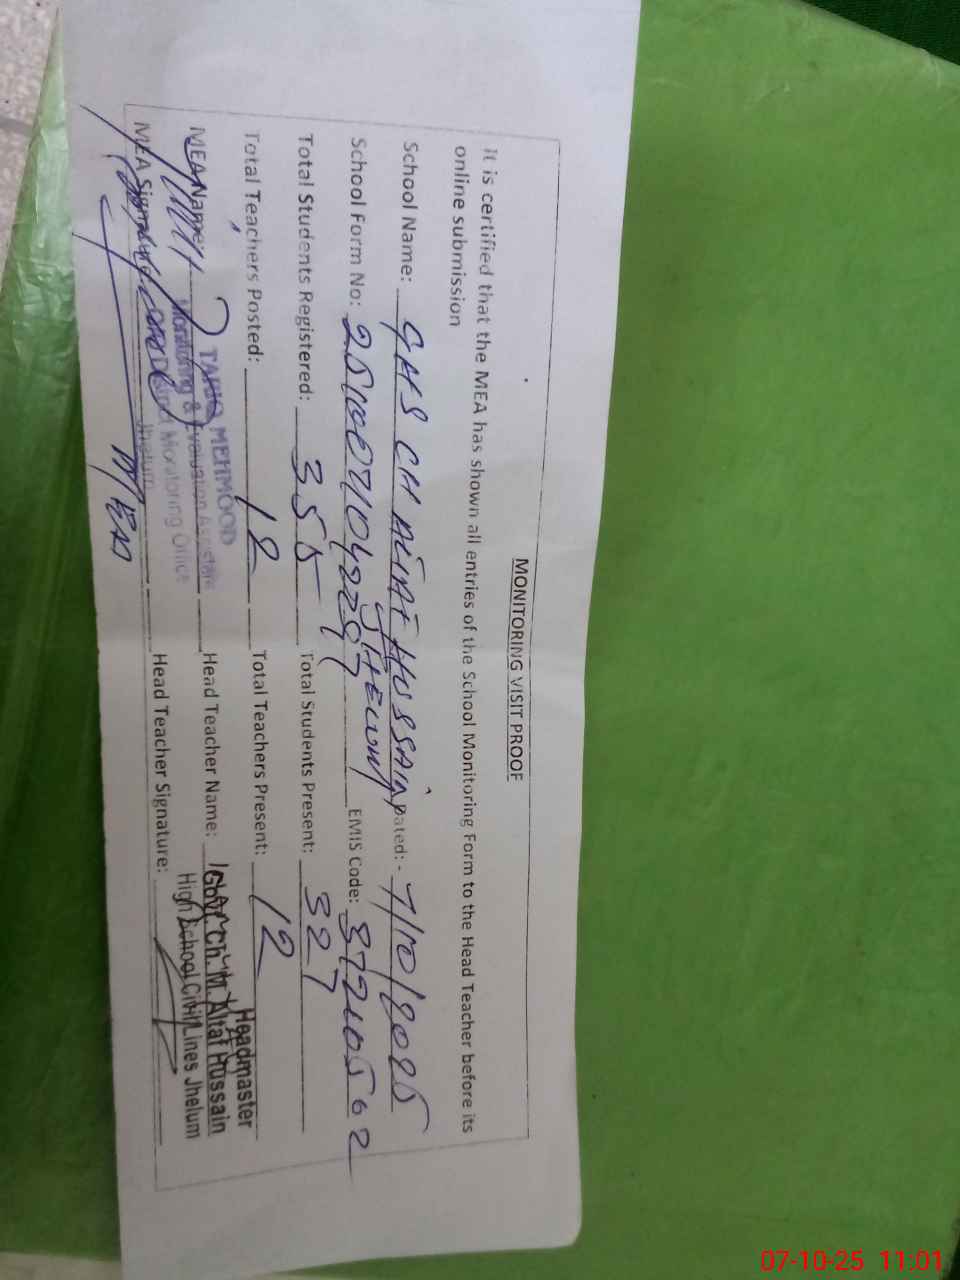 MONITORING VISIT PROOF
It is certified that the MEA has shown all entries of the School Monitoring Form to the Head Teacher before its
online submission
School Name: GHS CH ALTAF HUSSAIN Dated: - 7/10/2025
JHELUM
School Form No: EMIS Code: 37210502
Total Students Registered: 355 Total Students Present: 327
Total Teachers Posted: 12 Total Teachers Present: 12
MEA Name: TARIQ MEHMOOD Head Teacher Name: Headmaster
Monitoring & Evaluation Assistant Govt. Ch. M. Altaf Hussain
District Monitoring Office High School Civil Lines Jhelum
Jhelum
MEA Signature Head Teacher Signature:
07-10-25 11:01